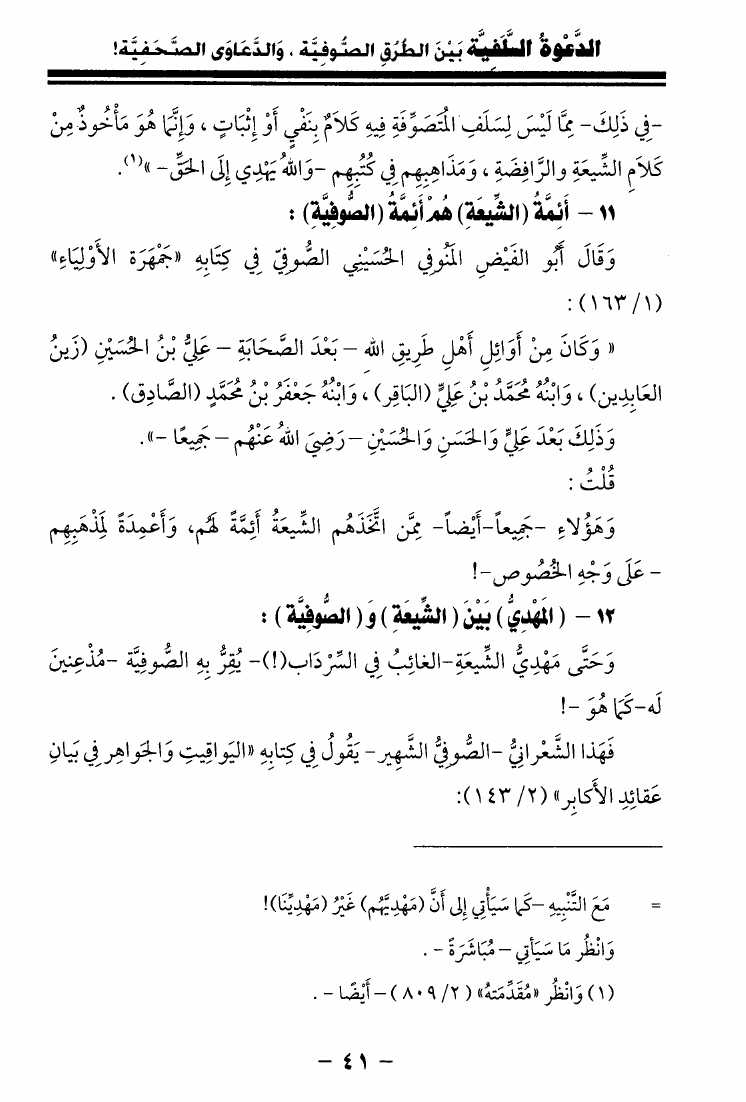 الدَّعْوةُ السَّلَفِيَّة بَيْنَ الطُرُقِ الصُّوفِيَّة ، وَالدَّعَاوَى الصَّحَفِيَّة!
-فِي ذَلِكَ- مِمَّا لَيْسَ لِسَلَفِ المُتَصَوِّفَةِ فِيهِ كَلاَمٌ بِنَفْيٍ أَوْ إِثْبَاتٍ ، وَإِنَّمَا هُوَ مَأْخُوذٌ مِنْ
كَلاَمِ الشِّيعَةِ والرَّافِضَةِ ، وَمَذَاهِبِهِم فِي كُتُبِهِم -وَاللهُ يَهْدِي إِلَى الحَقِّ- »(١).
١١ - أَئِمَّةُ (الشِّيعَةِ) هُمْ أَئِمَّةُ (الصُّوفِيَّةِ) :
وَقَالَ أَبُو الفَيْضِ المَنُوفِي الحُسَيْنِي الصُّوفِيّ فِي كِتَابِهِ «جَمْهَرَة الأَوْلِيَاءِ»
(١/ ١٦٣) :
« وَكَانَ مِنْ أَوَائِلِ أَهْلِ طَرِيقِ الله – بَعْدَ الصَّحَابَةِ – عَلِيُّ بْنُ الحُسَيْنِ (زَينُ
العَابِدِين) ، وَابْنُهُ مُحَمَّدُ بْنُ عَلِيٍّ (البَاقِر) ، وَابْنُهُ جَعْفَرُ بْنُ مُحَمَّدٍ (الصَّادِق) .
وَذَلِكَ بَعْدَ عَلِيٍّ وَالحَسَنِ وَالحُسَيْنِ – رَضِيَ اللهُ عَنْهُم – جَمِيعًا -».
قُلْتُ :
وَهَؤُلاَءِ -جَمِيعاً-أَيْضاً- مِمَّن اتَّخَذَهُم الشِّيعَةُ أَئِمَّةً لَهُم، وَأَعْمِدَةً لِمَذْهَبِهِم
- عَلَى وَجْهِ الخُصُوص-!
١٢ - (المَهْدِيُّ) بَيْنَ (الشِّيعَةِ) وَ(الصُّوفِيَّة) :
وَحَتَّى مَهْدِيُّ الشِّيعَةِ-الغَائِبُ فِي السِّرْدَاب(!)- يُقِرُّ بِهِ الصُّوفِيَّة -مُذْعِنينَ
لَه-كَمَا هُوَ -!
فَهَذا الشَّعْرانِيُّ -الصُّوفِيُّ الشَّهِير- يَقُولُ فِي كِتابِهِ «اليَواقِيت وَالجَواهِر فِي بَيانِ
عَقائِدِ الأَكابِر» (٢/ ١٤٣):
= مَعَ التَّنْبِيهِ –كَمَا سَيَأْتِي إِلى أَنَّ (مَهْدِيَّهُم) غَيْرُ (مَهْدِيِّنَا)!
وَانْظُر مَا سَيَأتِي – مُبَاشَرَةً - .
(١) وَانْظُر «مُقَدِّمَتهُ» (٢/ ٨٠٩) – أَيْضًا - .
– ٤١ –